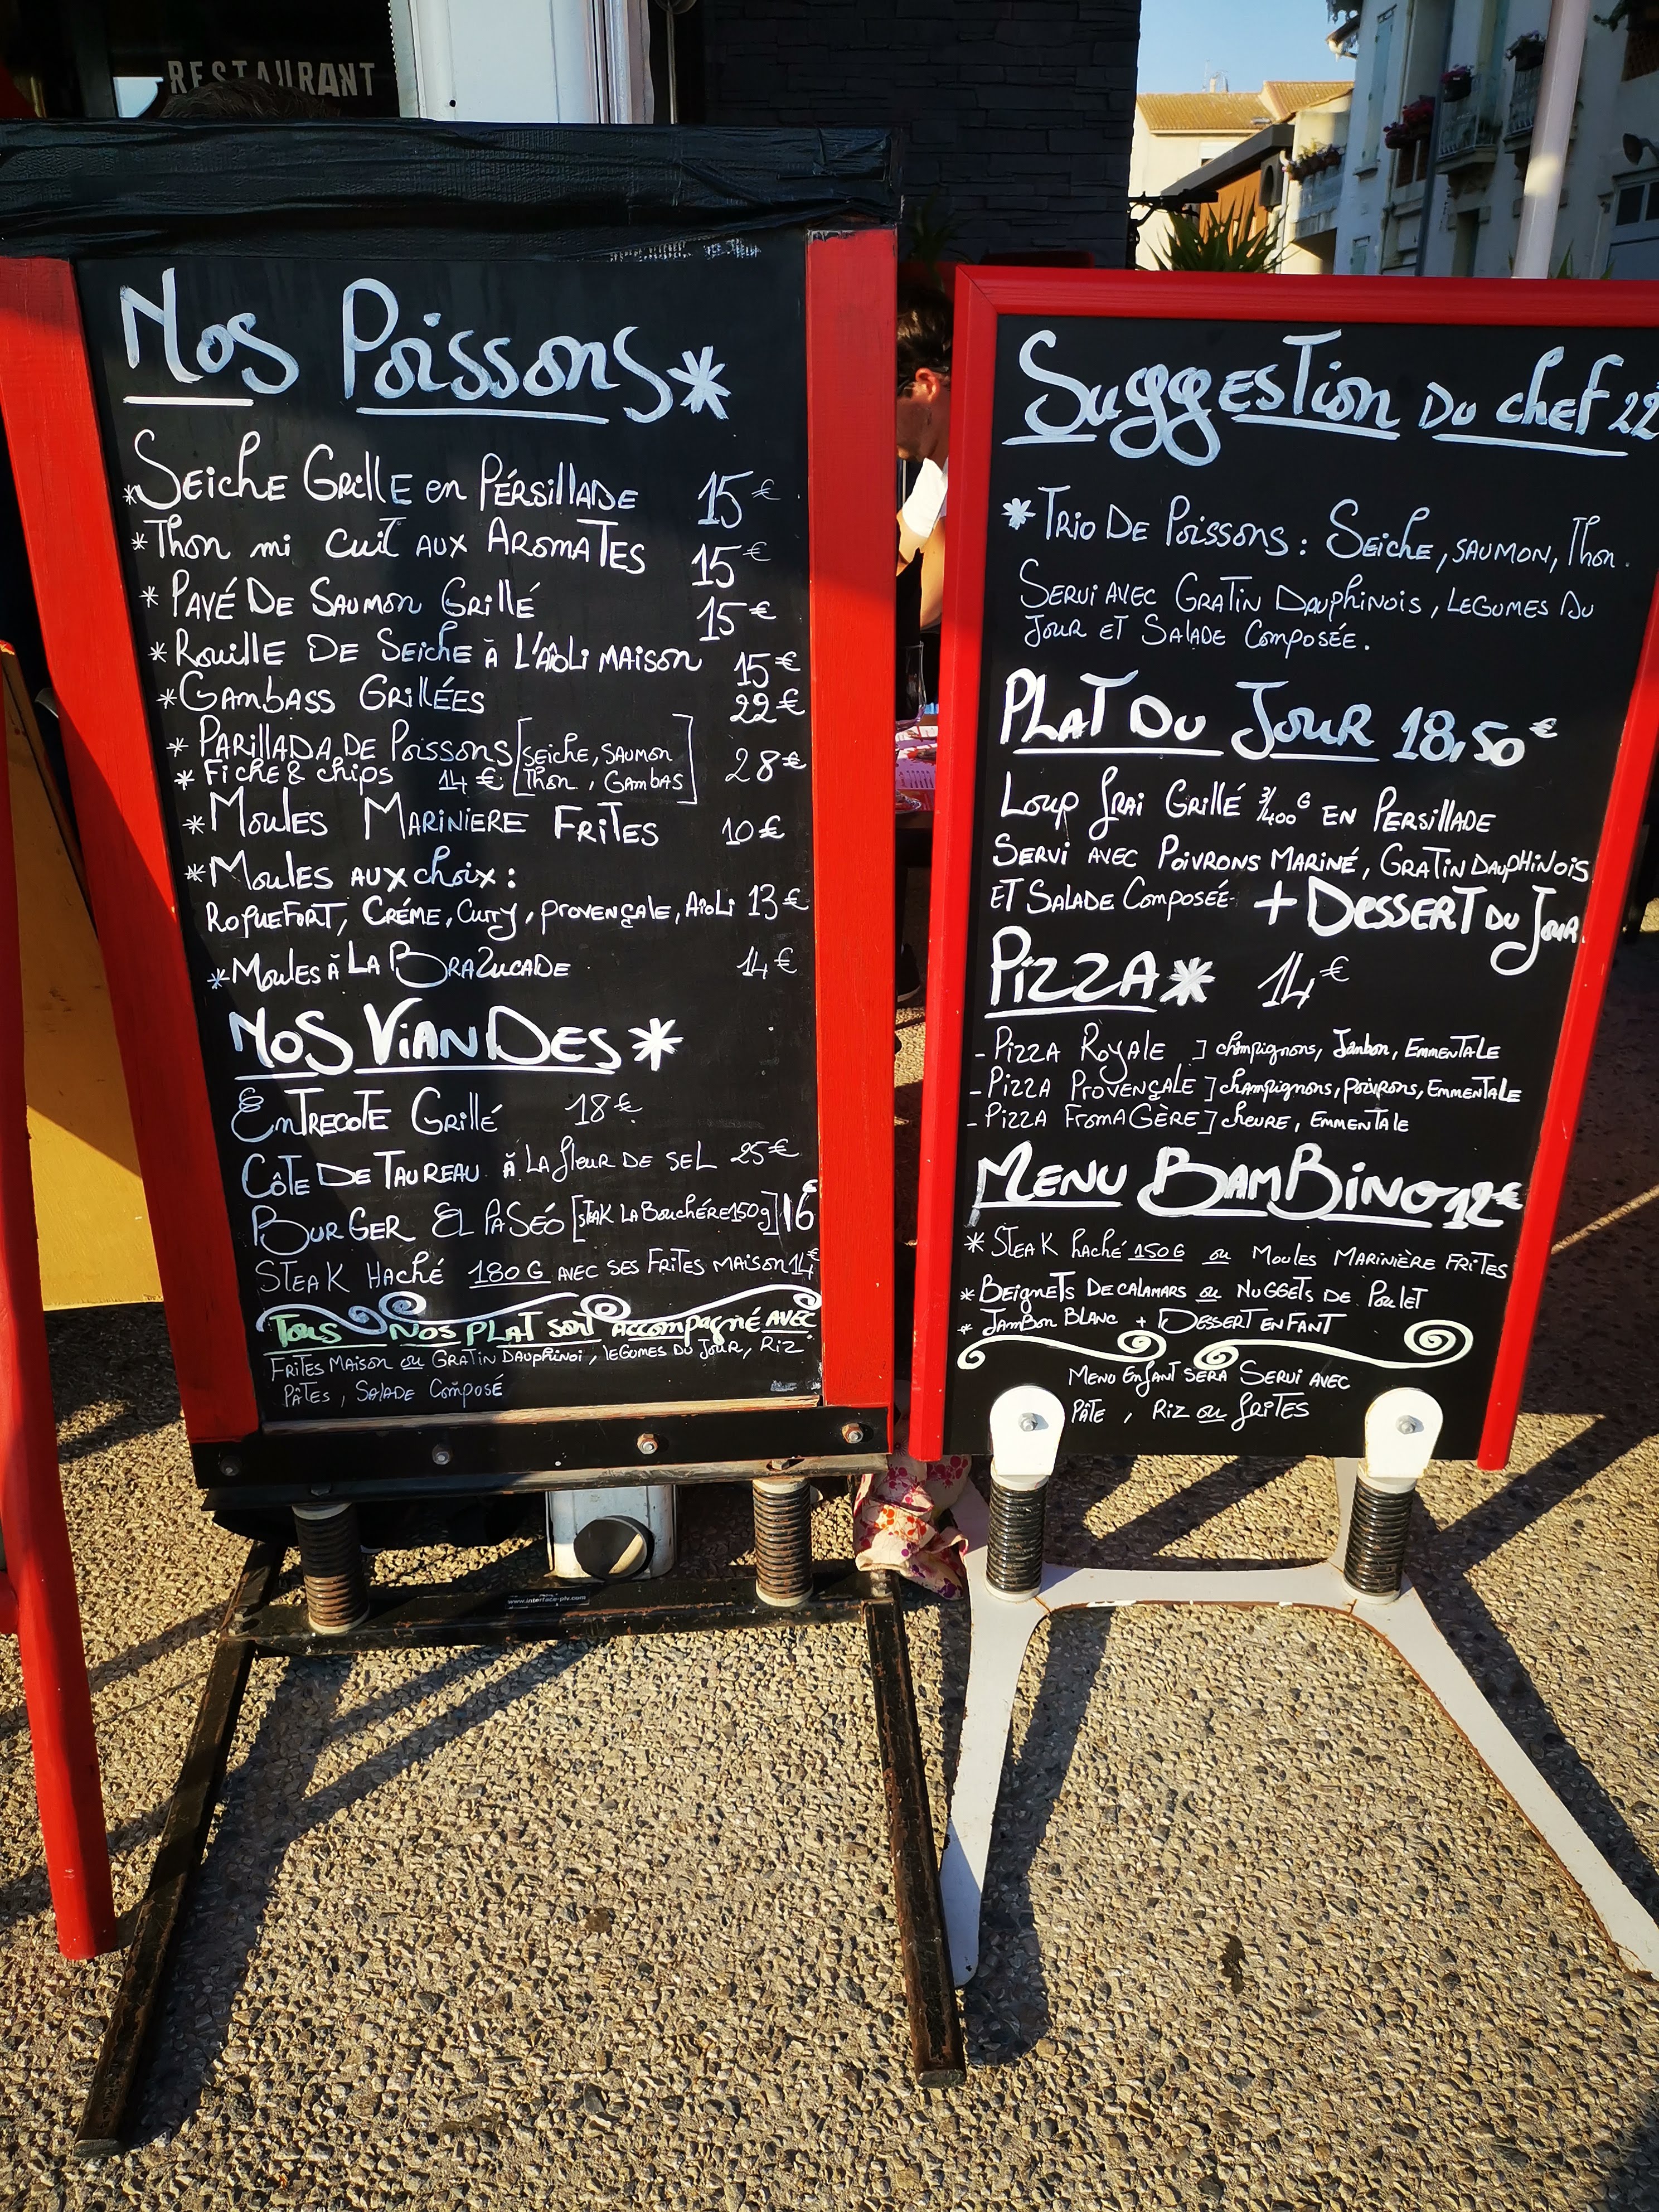 RESTAURANT
Nos Poissons*
*Seiche Grille en Pérsillade 15€
*Thon mi cuit aux Aromates 15€
*Pavé De Saumon Grillé 15€
*Rouille De Seiche à L'aïoli maison 15€
*Gambass Grillées 22€
*Parillada de Poissons [Seiche, Saumon 28€
*Fiche & chips 14€ Thon, Gambas]
*Moules Mariniere Frites 10€
*Moules aux choix :
Roquefort, Créme, Curry, provençale, Aïoli 13€
*Moules à La Brazucade 14€
Nos Viandes*
Entrecote Grillé 18€
Côte De Taureau à La fleur de sel 25€
Burger El Paséo [steak La Bouchére 150g] 16€
Steak Haché 180G avec ses Frites maison 14€
Tous nos plat sont accompagné avec
Frites Maison ou Gratin Dauphinoi, legumes du jour, Riz
Pâtes, Salade Composé
www.interface-plv.com
Suggestion du chef 22
*Trio De Poissons : Seiche, saumon, Thon.
Servi avec Gratin Dauphinois, Legumes du
Jour et Salade Composée.
Plat du Jour 18,50€
Loup frai Grillé 3/400G en Persillade
Servi avec Poivrons Mariné, Gratin Dauphinois
et Salade Composée + Dessert du Jour.
Pizza* 14€
- Pizza Royale ] champignons, Jambon, Emmentale
- Pizza Provençale ] champignons, poivrons, Emmentale
- Pizza Fromagère ] chevre, Emmentale
Menu Bambino 12€
*Steak haché 150G ou Moules Marinière Frites
*Beignets de calamars ou Nuggets de Poulet
*Jambon Blanc + Dessert enfant
Menu Enfant sera Servi avec
Pâte, Riz ou frites